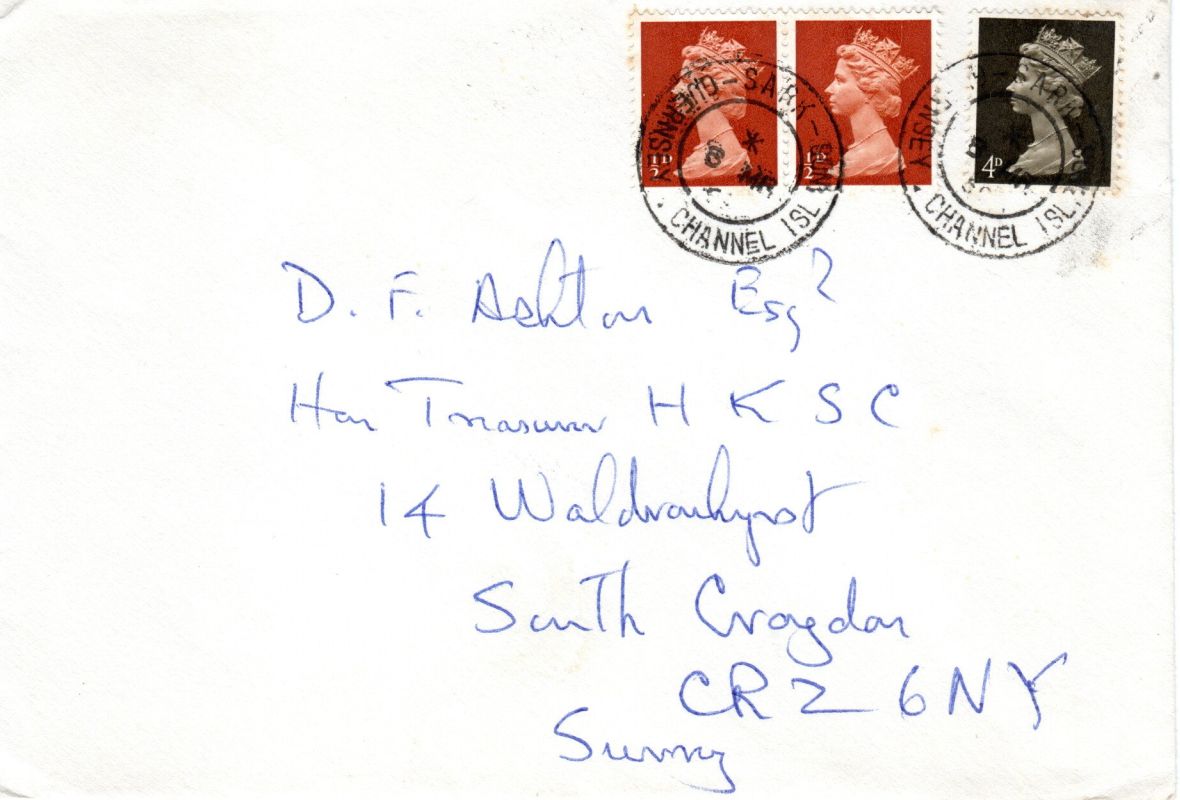 ½D ½D 4D
GUERNSEY - SARK - GUERNSEY · CHANNEL ISL
8 MR
SARK
CHANNEL ISL
D. F. Ashton Esqr
Hon Treasurer H K S C
14 Waldronhyrst
South Croydon
CR2 6NY
Surrey